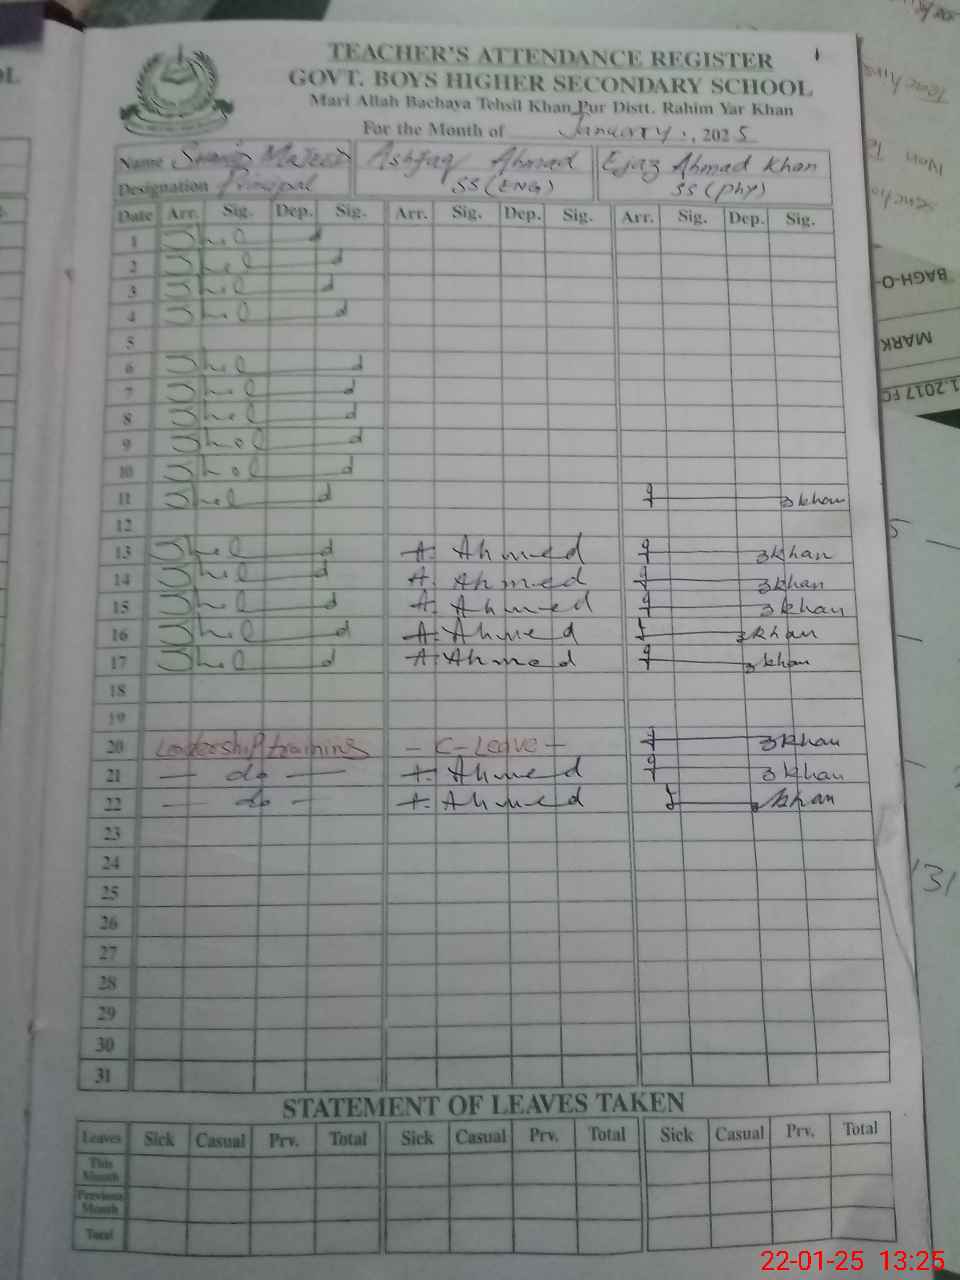 TEACHER'S ATTENDANCE REGISTER
GOVT. BOYS HIGHER SECONDARY SCHOOL
Mari Allah Bachaya Tehsil Khan Pur Distt. Rahim Yar Khan
For the Month of January, 2025
Name Majeed Ashfaq Ahmad Ejaz Ahmad Khan
Designation Principal SS (ENG) SS (Phy)
Date Arr. Sig. Dep. Sig. Arr. Sig. Dep. Sig. Arr. Sig. Dep. Sig.
1
2
3
4
5
6
7
8
9
10
11 khan
12
13 A. Ahmed khan
14 A. Ahmed khan
15 A. Ahmed khan
16 A. Ahmed khan
17 A. Ahmed khan
18
19
20 Leadership training - C-Leave - khan
21 — do — A. Ahmed khan
22 — do — A. Ahmed khan
23
24
25
26
27
28
29
30
31
STATEMENT OF LEAVES TAKEN
Leaves Sick Casual Prv. Total Sick Casual Prv. Total Sick Casual Prv. Total
This Month
Previous Month
Total
BAGH-O-
MARK
1.2017 FC
131
22-01-25 13:25